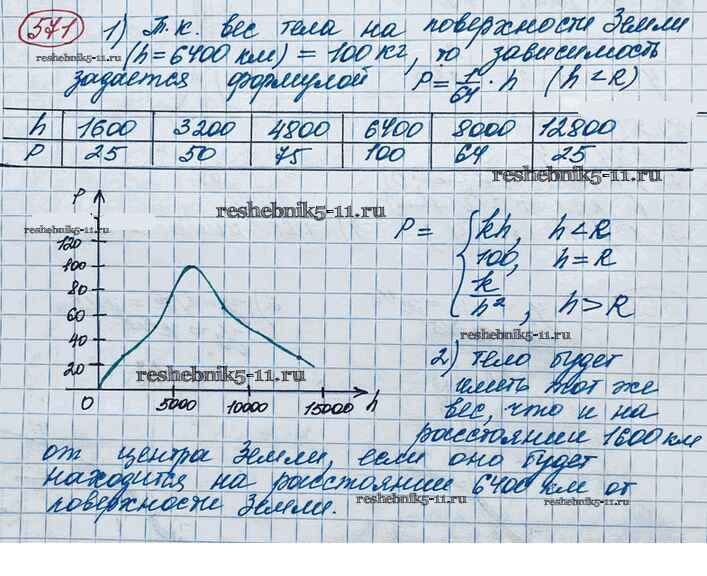 571 1) Т.к. вес тела на поверхности Земли
reshebnik5-11.ru (h=6400 км) = 100 кг, то зависимость
задается формулой P=1/64·h (h<R)
reshebnik5-11.ru
h 1600 3200 4800 6400 8000 12800
P 25 50 75 100 64 25
reshebnik5-11.ru
P
reshebnik5-11.ru
reshebnik5-11.ru
120
100
80
60
40
20
0 5000 10000 15000 h
reshebnik5-11.ru
P = { kh, h<R
100, h=R
k/h², h>R
reshebnik5-11.ru
2) Тело будет
иметь тот же
вес, что и на
расстоянии 1600 км
от центра Земли, если оно будет
находится на расстоянии 6400 км от
поверхности Земли.
reshebnik5-11.ru
reshebnik5-11.ru